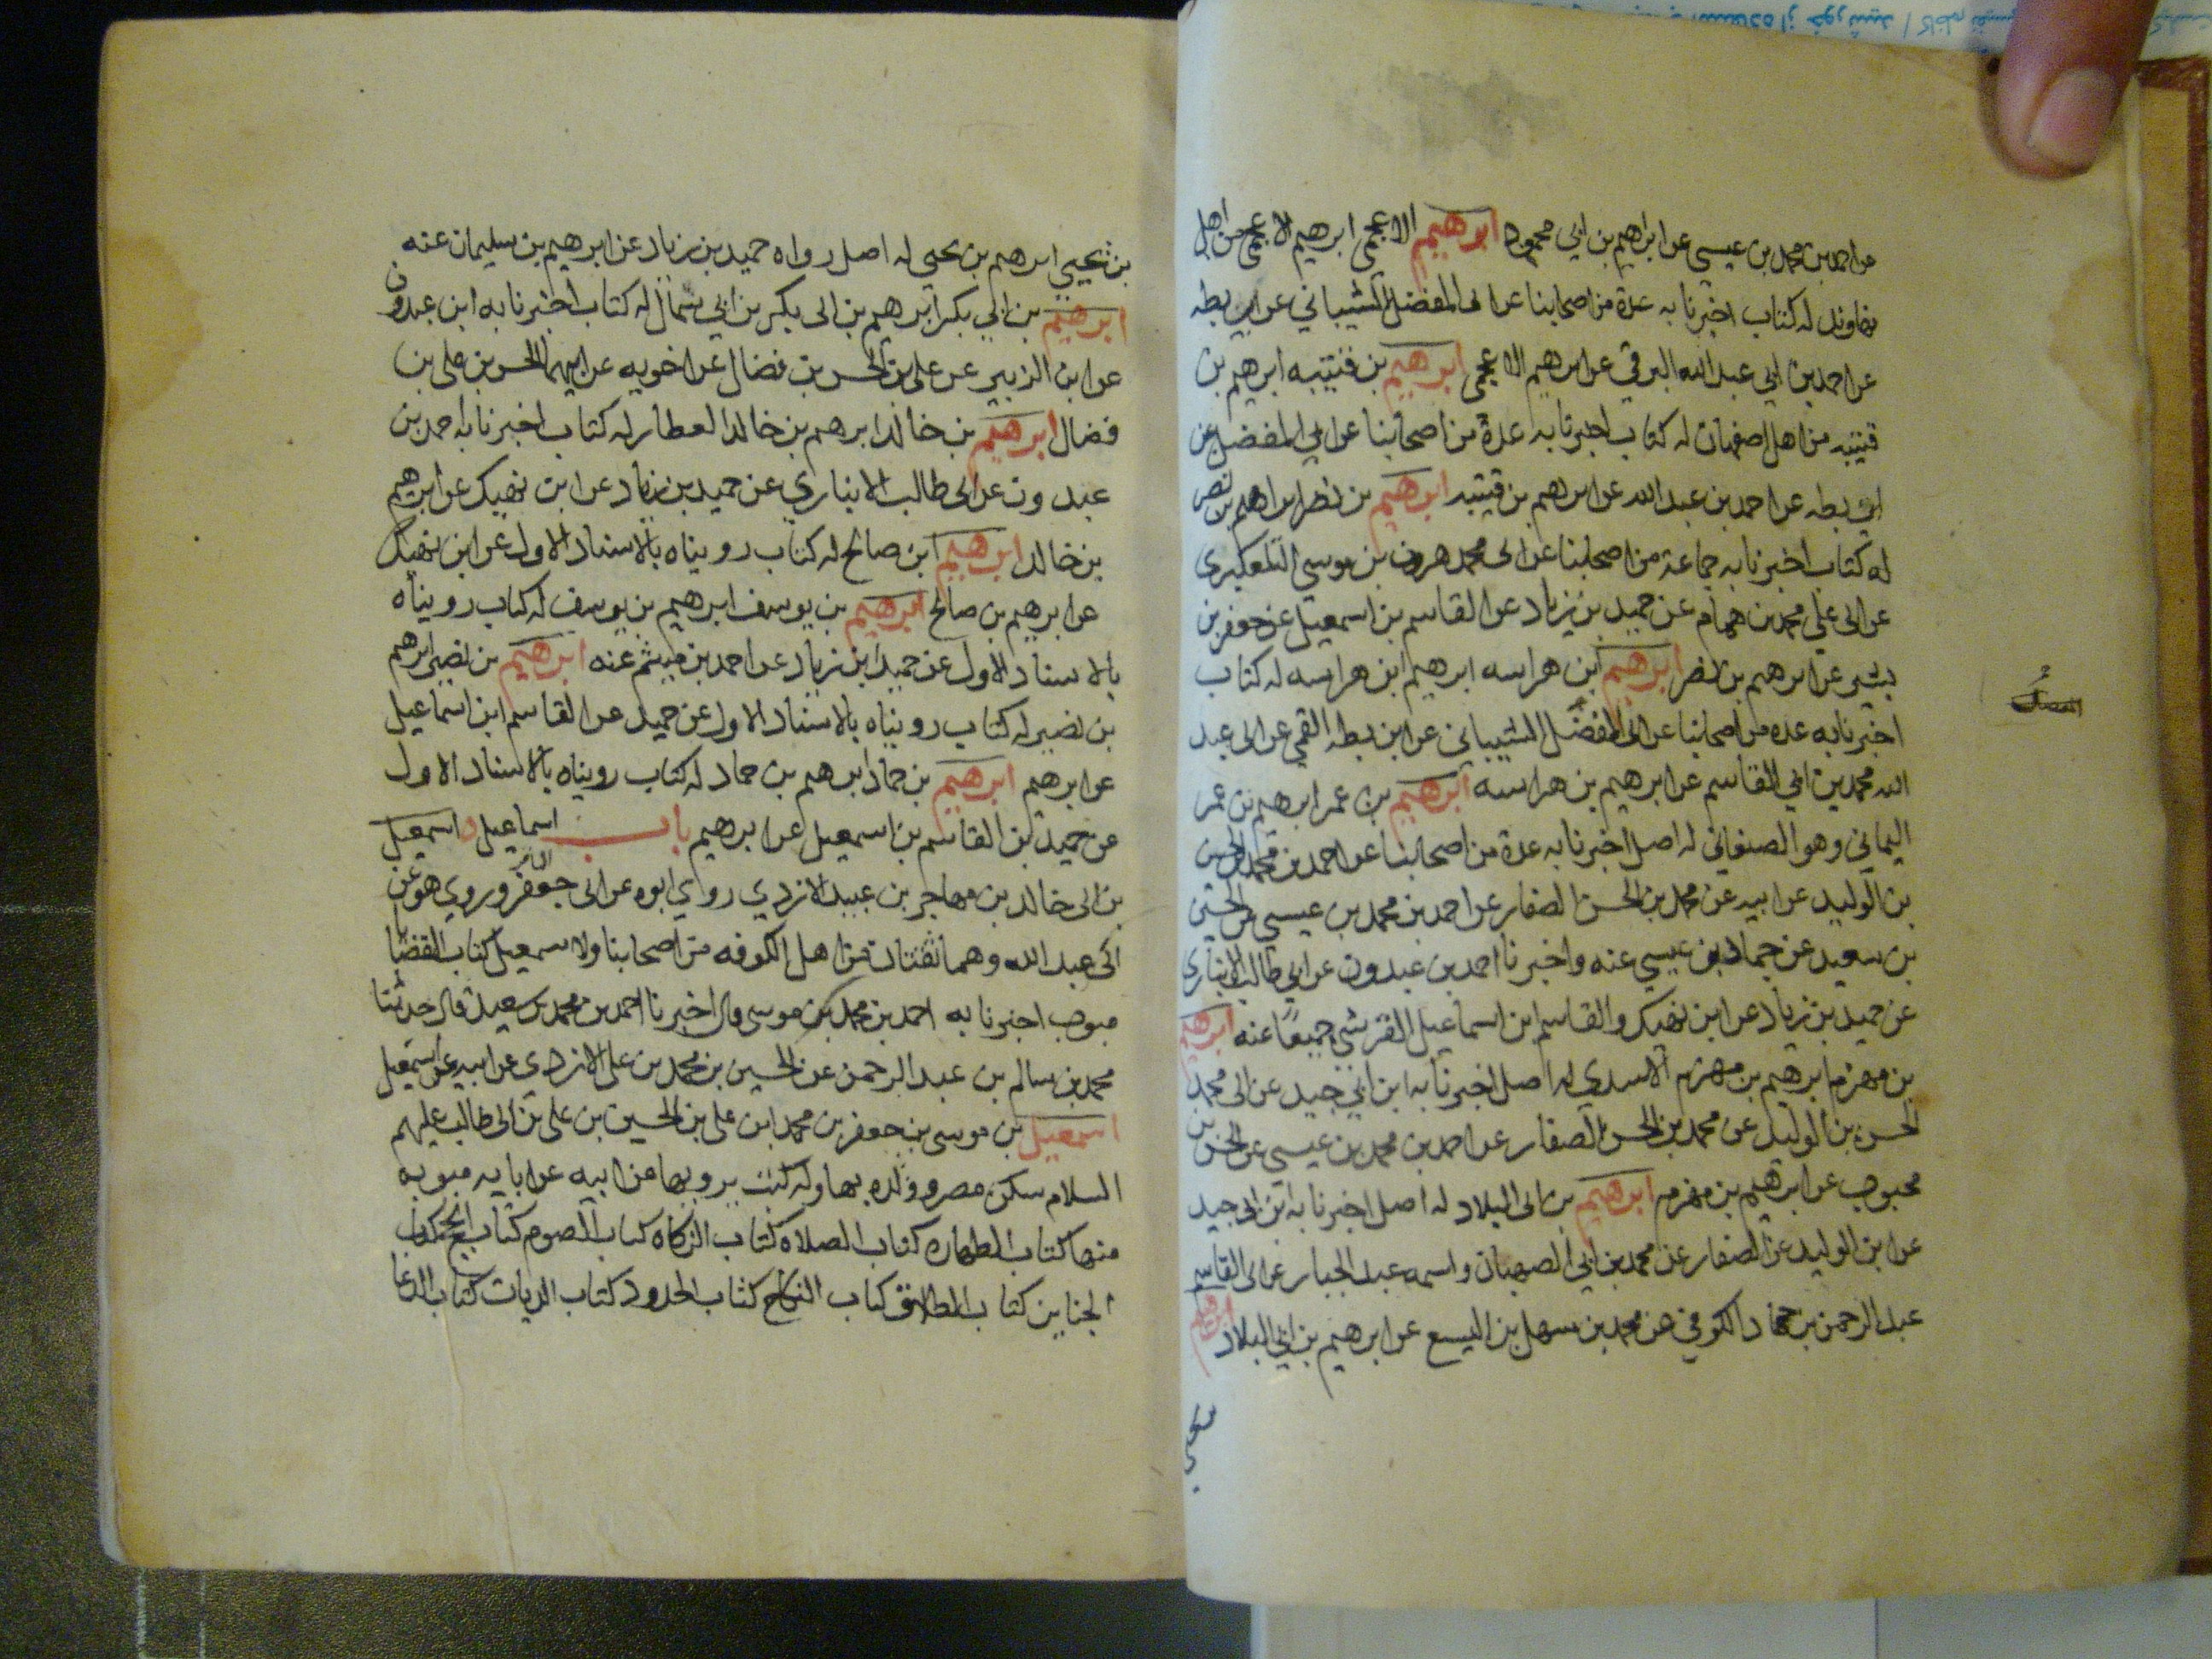 عن احمد بن محمد بن عيسى عن ابراهيم بن ابي محمود ابرهيم الاعجمي ابرهيم الاعجمي من اهل
نهاوند له كتاب اخبرنا به عدة من اصحابنا عن ابى المفضل الشيباني عن ابن بطه
عن احمد بن ابي عبد الله البرقي عن ابرهيم الاعجمى ابرهيم بن قتيبه ابرهيم بن
قتيبه من اهل اصفهان له كتاب اخبرنا به عدة من اصحابنا عن ابي المفضل عن
ابن بطه عن احمد بن عبد الله عن ابرهيم بن قتيبه ابرهيم بن نصر ابراهيم بن نصر
له كتاب اخبرنا به جماعة من اصحابنا عن ابى محمد هرون بن موسى التلعكبرى
عن ابى علي محمد بن همام عن حميد بن زياد عن القاسم بن اسمعيل عن جعفر بن
بشير عن ابرهيم بن نصر ابرهيم ابن هراسه ابرهيم ابن هراسه له كتاب
اخبرنا به عده من اصحابنا عن ابى المفضل الشيبانى عن ابن بطه القمي عن ابى عبد
الله محمد بن ابي القاسم عن ابرهيم بن هراسه ابرهيم بن عمر ابرهيم بن عمر
اليماني وهو الصنعاني له اصل اخبرنا به عدة من اصحابنا عن احمد بن محمد بن الحسن
بن الوليد عن ابيه عن محمد بن الحسن الصفار عن احمد بن محمد بن عيسى عن الحسين
بن سعيد عن حماد بن عيسى عنه واخبرنا احمد بن عبدون عن ابي طالب الانبارى
عن حميد بن زياد عن ابن نهيك والقاسم ابن اسماعيل القرشي جميعا عنه ابرهيم
بن مهزم ابرهيم بن مهزم الاسدي له اصل اخبرنا به ابن ابي جيد عن ابى محمد
الحسن بن الوليد عن محمد بن الحسن الصفار عن احمد بن محمد بن عيسى عن الحسن بن
محبوب عن ابرهيم بن مهزم ابرهيم بن ابى البلاد له اصل اخبرنا به ابن ابى جيد
عن ابن الوليد عن الصفار عن محمد بن ابي الصهبان واسمه عبد الجبار عن ابى القاسم
عبد الرحمن بن حماد الكوفي عن محمد بن سهل بن اليسع عن ابرهيم بن ابي البلاد ابرهيم
بن يحيى ابرهيم بن يحيى له اصل رواه حميد بن زياد عن ابرهيم بن سليمان عنه
ابرهيم بن ابي بكر ابرهيم بن ابى بكر بن ابي سمال له كتاب اخبرنا به ابن عبدون
عن ابن الزبير عن على بن الحسن بن فضال عن اخويه عن ابيهما الحسن بن على بن
فضال ابرهيم بن خالد ابرهيم بن خالد العطار له كتاب اخبرنا به احمد بن
عبدون عن ابى طالب الانباري عن حميد بن زياد عن ابن نهيك عن ابرهيم
بن خالد ابرهيم ابن صالح له كتاب رويناه بالاسناد الاول عن ابن نهيك
عن ابرهيم بن صالح ابرهيم بن يوسف ابرهيم بن يوسف له كتاب رويناه
بالاسناد الاول عن حميد ابن زياد عن احمد بن ميثم عنه ابرهيم بن نصير ابرهيم
بن نصير له كتاب رويناه بالاسناد الاول عن حميد عن القاسم ابن اسماعيل
عن ابرهيم ابرهيم بن حماد ابرهيم بن حماد له كتاب رويناه بالاسناد الاول
عن حميد بن القاسم بن اسمعيل عن ابرهيم باب اسماعيل اسمعيل
بن ابى خالد بن مهاجر بن عبيد الازدي روى ابوه عن ابى جعفر وروي هو عن
ابى عبد الله وهما ثقتان من اهل الكوفه من اصحابنا ولاسمعيل كتاب القضايا
مبوب اخبرنا به احمد بن محمد بن موسى قال اخبرنا احمد بن محمد بن سعيد قال حدثنا
محمد بن سالم بن عبد الرحمن عن الحسين بن محمد بن على الازدى عن ابيه عن اسمعيل
اسمعيل بن موسى بن جعفر بن محمد ابن على بن الحسين بن على بن ابى طالب عليهم
السلام سكن مصر وولده بها وله كتب يرويها عن ابيه عن ابايه مبوبه
منها كتاب الطهارة كتاب الصلاه كتاب الزكاه كتاب الصوم كتاب الحج كتاب
الجنايز كتاب الطلاق كتاب النكاح كتاب الحدود كتاب الديات كتاب الدعا